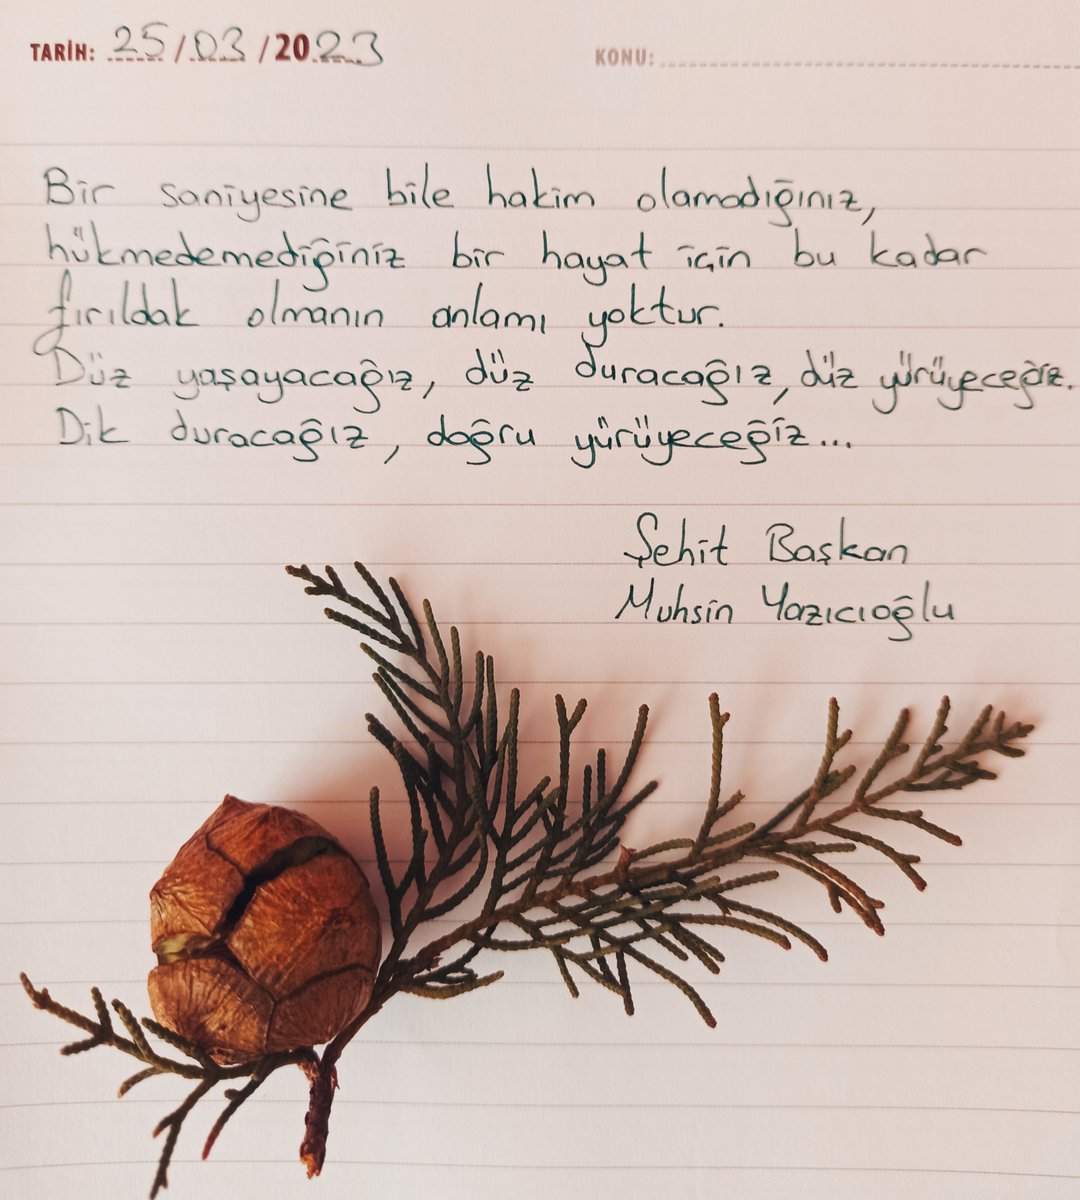 TARİH: 25/03/2023 KONU:
Bir saniyesine bile hakim olamadığınız,
hükmedemediğiniz bir hayat için bu kadar
fırıldak olmanın anlamı yoktur.
Düz yaşayacağız, düz duracağız, düz yürüyeceğiz.
Dik duracağız, doğru yürüyeceğiz...
Şehit Başkan
Muhsin Yazıcıoğlu